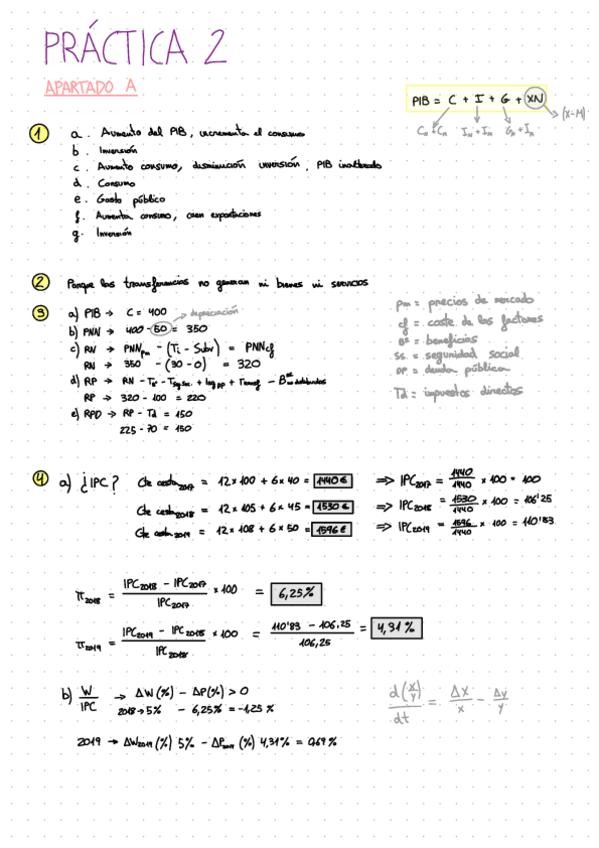 PRÁCTICA 2
APARTADO A
PIB = C + I + G + XN
(X-M)
1
a. Aumento del PIB, incrementa el consumo
b. Inversión
c. Aumento consumo, disminución inversión, PIB inalterado
d. Consumo
e. Gasto público
f. Aumenta consumo, caen exportaciones
g. Inversión
2 Porque las transferencias no generan ni bienes ni servicios
3 a) PIB → C = 400
→ depreciación
b) PNN → 400 - 50 = 350
c) RN → PNNpm - (Ti - Subv) = PNNcf
RN → 350 - (30 - 0) = 320
RP → 320 - 100 = 220
e) RPD → RP - Td = 150
225 - 70 = 150
pm = precios de mercado
cf = coste de los factores
Bº = beneficios
ss = seguridad social
pp = deuda pública
Td = impuestos directos
4 a) ¿IPC? Cte cesta2017 = 12×100 + 6×40 = 1440€ ⇒ IPC2017 = 1440/1440 × 100 = 100
Cte cesta2018 = 12×105 + 6×45 = 1530€ ⇒ IPC2018 = 1530/1440 × 100 = 106'25
Cte cesta2019 = 12×108 + 6×50 = 1596€ ⇒ IPC2019 = 1596/1440 × 100 = 110'83
π2018 = IPC2018 - IPC2017 / IPC2017 × 100 = 6,25%
π2019 = IPC2019 - IPC2018 / IPC2018 × 100 = 110'83 - 106,25 / 106,25 = 4,31%
b) W/IPC → ΔW(%) - ΔP(%) > 0
2018 → 5% - 6,25% = -1,25%
d(x/y)/dt = Δx/x - Δy/y
2019 → ΔW2019(%) 5% - ΔP2019(%) 4,31% = 0,69%